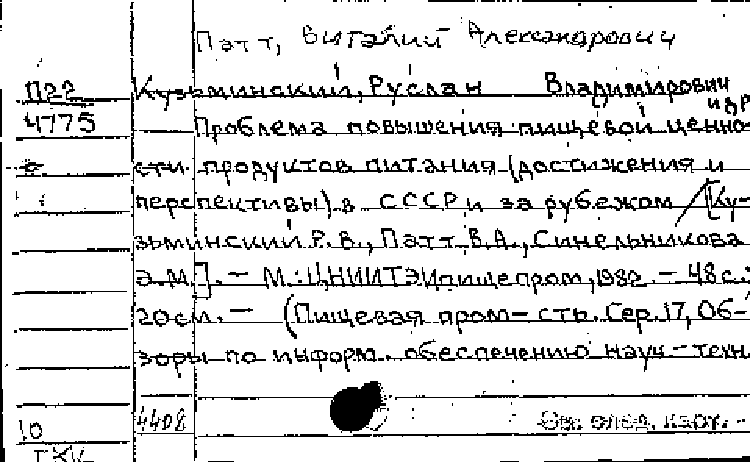 Патт, Виталий Александрович
П22 Кузьминский, Руслан Владимирович
и др
4775 Проблема повышения пищевой ценно-
сти продуктов питания (достижения и
перспективы) в СССР и за рубежом /[Ку-
зьминский Р.В., Патт В.А., Синельникова
Э.М.]. — М.: ЦНИИТЭИпищепром, 1982. — 48 с.;
20 см. — (Пищевая пром-сть. Сер. 17, Об-
зоры по информ. обеспечению науч.-техн.
4408 См. след. карт. -
10